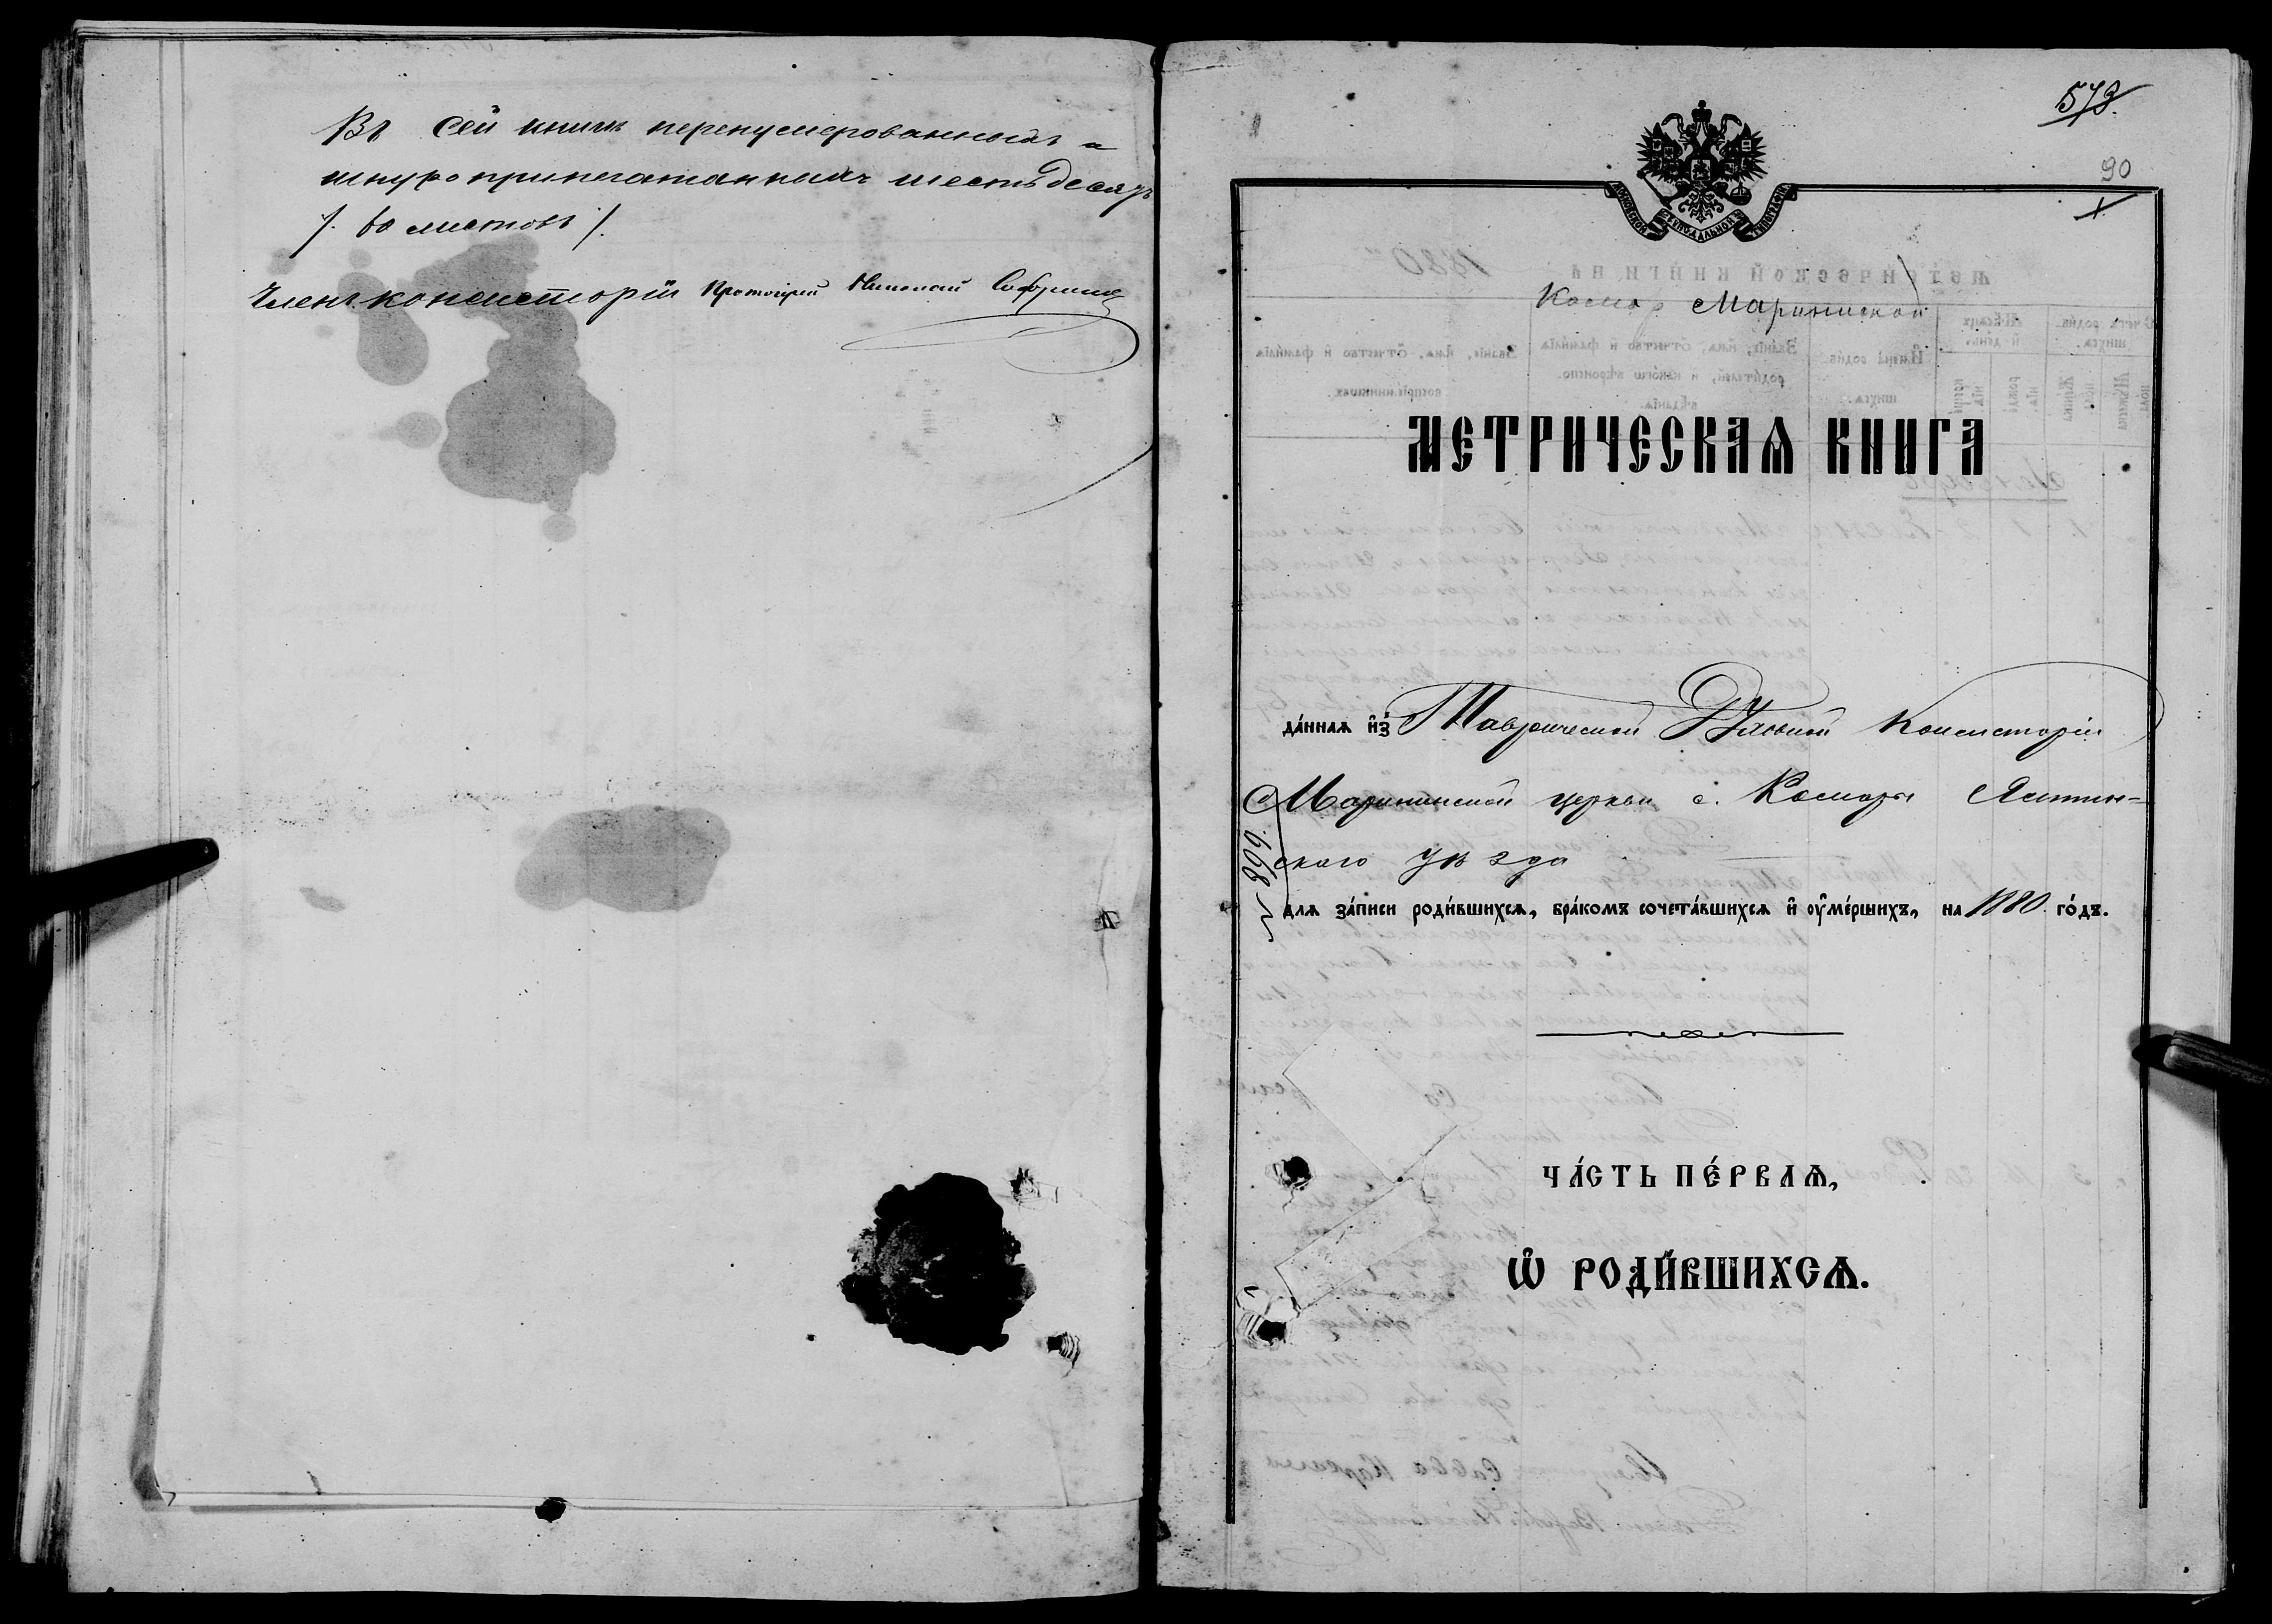 Въ сей книгѣ перенумерованныхъ и
шнуроприпечатанныхъ шестьдесятъ
/. 60 листовъ /.
Членъ консисторіи Протоіерей Николай
578.
90
МОСКОВСКОЙ СѴНОДАЛЬНОЙ ТИПОГРАФІИ
Комар Маринской
МЕТРИЧЕСКАѦ КНИГА
да́ннаѧ и҆з̾ Таврической Духовной Консисторіи
Маринской церкви с. Комары Ялтин=
скаго уѣзда
668
для за́писи роди́вшихсѧ, бра́комъ сочета́вшихсѧ и҆ оу҆ме́ршихъ, на 1880 го́дъ.
ЧА́СТЬ ПЕ́РВАѦ,
Ѡ҆ РОДИ́ВШИХСѦ.